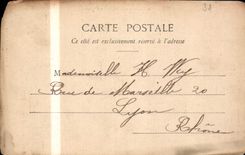 31
CARTE POSTALE
Ce côté est exclusivement réservé à l'adresse
Mademoiselle H. Wey
Rue de Marseille 20
Lyon
Rhône